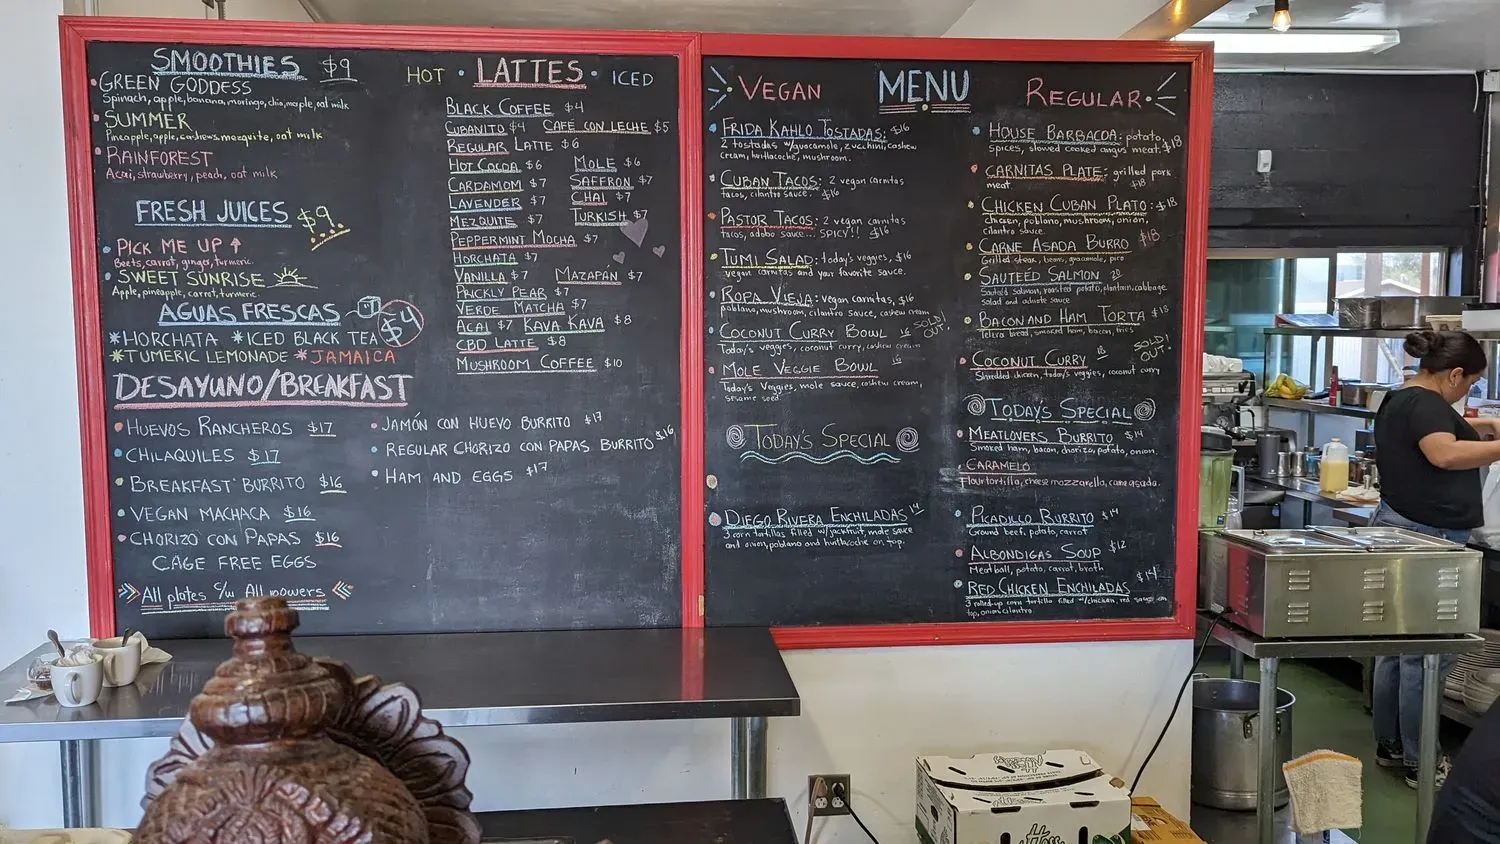 SMOOTHIES $9
GREEN GODDESS
Spinach, apple, banana, moringa, chia, maple, oat milk
SUMMER
Pineapple, apple, cashews, mezquite, oat milk
RAINFOREST
Acai, strawberry, peach, oat milk
FRESH JUICES $9
PICK ME UP
Beets, carrot, ginger, turmeric
SWEET SUNRISE
Apple, pineapple, carrot, turmeric
AGUAS FRESCAS $4
*HORCHATA *ICED BLACK TEA
*TUMERIC LEMONADE *JAMAICA
DESAYUNO/BREAKFAST
HUEVOS RANCHEROS $17
CHILAQUILES $17
BREAKFAST BURRITO $16
VEGAN MACHACA $16
CHORIZO CON PAPAS $16
CAGE FREE EGGS
All plates c/u All powers
JAMÓN CON HUEVO BURRITO $17
REGULAR CHORIZO CON PAPAS BURRITO $16
HAM AND EGGS $17
HOT • LATTES • ICED
BLACK COFFEE $4
CUBANITO $4 CAFÉ CON LECHE $5
REGULAR LATTE $6
HOT COCOA $6 MOLE $6
CARDAMOM $7 SAFFRON $7
LAVENDER $7 CHAI $7
MEZQUITE $7 TURKISH $7
PEPPERMINT MOCHA $7
HORCHATA $7
VANILLA $7 MAZAPÁN $7
PRICKLY PEAR $7
VERDE MATCHA $7
ACAI $7 KAVA KAVA $8
CBD LATTE $8
MUSHROOM COFFEE $10
VEGAN MENU REGULAR
FRIDA KAHLO TOSTADAS: $16
2 tostadas w/guacamole, zucchini, cashew
cream, huitlacoche, mushroom.
CUBAN TACOS: 2 vegan carnitas
tacos, cilantro sauce. $16
PASTOR TACOS: 2 vegan carnitas
tacos, adobo sauce... SPICY!! $16
TUMI SALAD: today's veggies, $16
vegan carnitas and your favorite sauce.
ROPA VIEJA: vegan carnitas, $16
poblano, mushroom, cilantro sauce, cashew cream
COCONUT CURRY BOWL 16 SOLD OUT
Today's veggies, coconut curry, cashew cream
MOLE VEGGIE BOWL 16
Today's Veggies, mole sauce, cashew cream,
sesame seed.
TODAY'S SPECIAL
DIEGO RIVERA ENCHILADAS 14
3 corn tortillas filled w/jackfruit, mole sauce
and onion, poblano and huitlacoche on top.
HOUSE BARBACOA: potato,
spices, slowed cooked angus meat. $18
CARNITAS PLATE: grilled pork
meat. $18
CHICKEN CUBAN PLATO: $18
chicken, poblano, mushroom, onion,
cilantro sauce.
CARNE ASADA BURRO $18
Grilled steak, beans, guacamole, pico
SAUTEÉD SALMON 20
Sauteéd salmon, roasted potato, plantain, cabbage
salad and adobo sauce
BACON AND HAM TORTA $15
Telera bread, smoked ham, bacon, fries
COCONUT CURRY 18 SOLD! OUT
Shredded chicken, today's veggies, coconut curry
TODAY'S SPECIAL
MEATLOVERS BURRITO $14
Smoked ham, bacon, chorizo, potato, onion.
CARAMELO
Flour tortilla, cheese mozzarella, carne asada.
PICADILLO BURRITO $14
Ground beef, potato, carrot
ALBONDIGAS SOUP $12
Meatball, potato, carrot, broth
RED CHICKEN ENCHILADAS $14
3 rolled-up corn tortilla filled w/chicken, red sauce on
top, onion, cilantro.